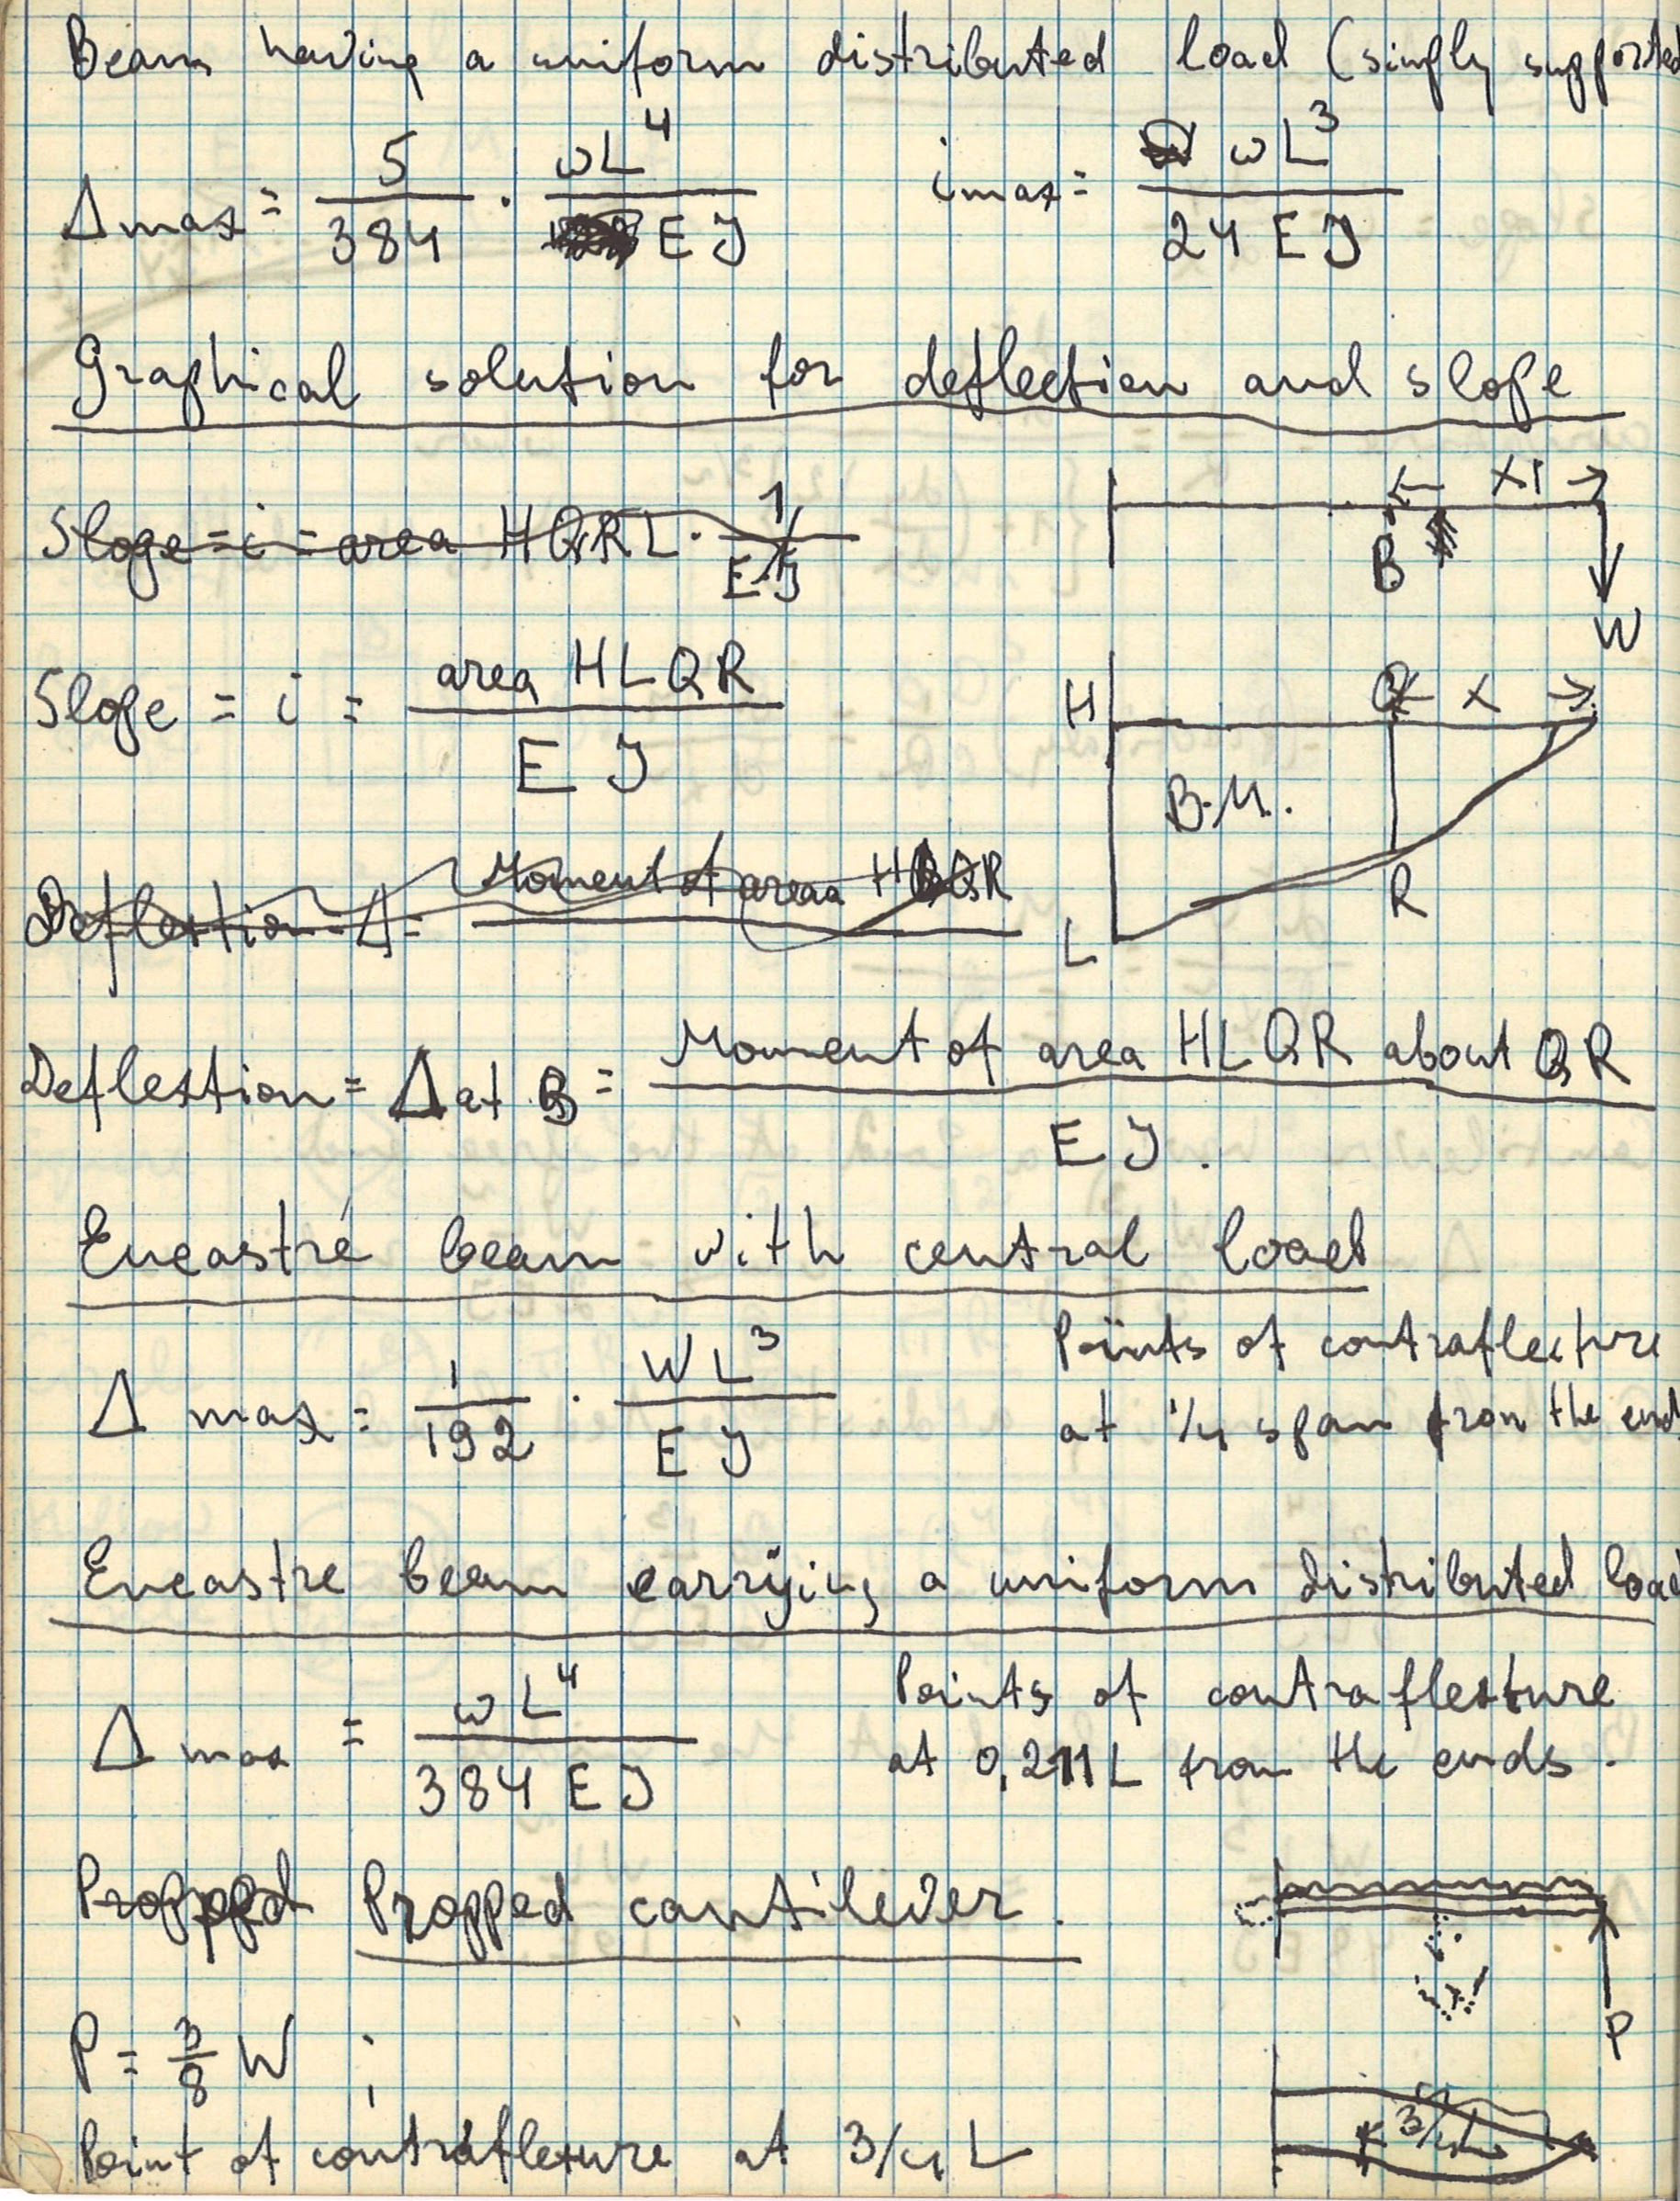 Beam having a uniform distributed load (simply supported
Δmax = 5/384 · wL⁴/EJ    imax = wL³/24EJ
Graphical solution for deflection and slope
Slope = i = area HQRL · 1/EJ
← x1 →
B
W
Slope = i = area HLQR / EJ
H Q ← x →
B.M.
R
L
Deflextion = Δ = Moment of areaa
Deflextion = Δ at B = Moment of area HLQR about QR / EJ.
Encastré beam with central load
Δ max = 1/192 · WL³/EJ    Points of contraflecture
at 1/4 span from the end
Encastre beam carrying a uniform distributed load
Δ max = wL⁴/384EJ    Points of contraflexture
at 0,211L from the ends.
Propped cantilever.
P
P = 3/8 W ;
3/4L
Point of contraflexure at 3/4 L